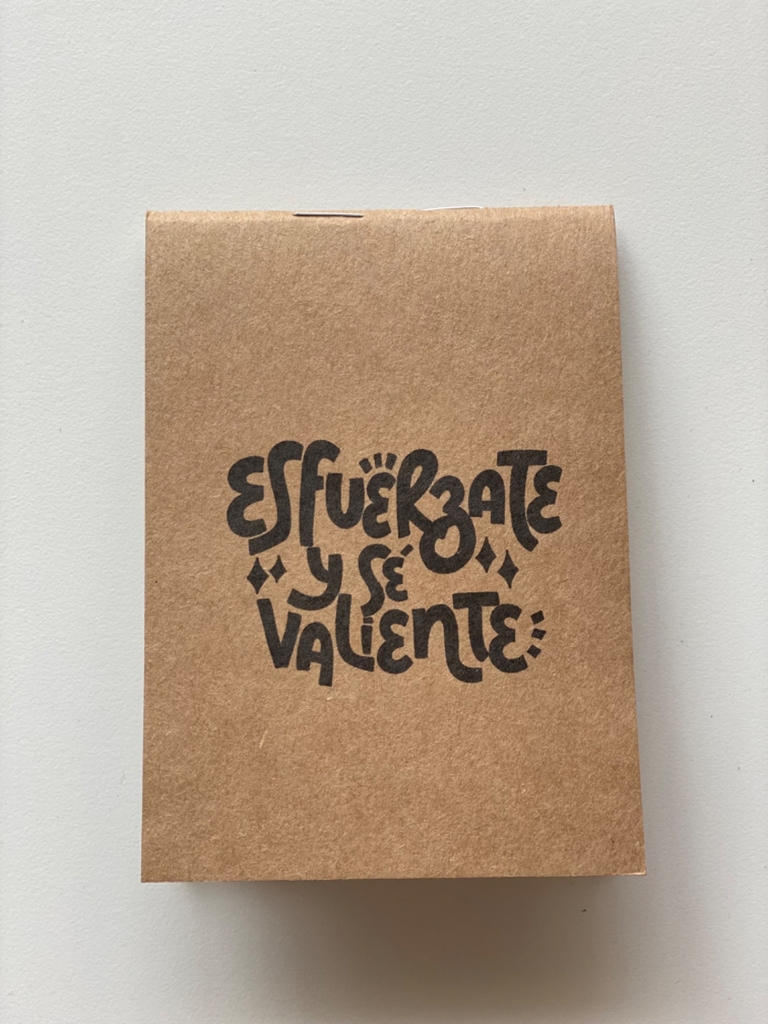 ESFUERZATE
Y SÉ
VALIENTE